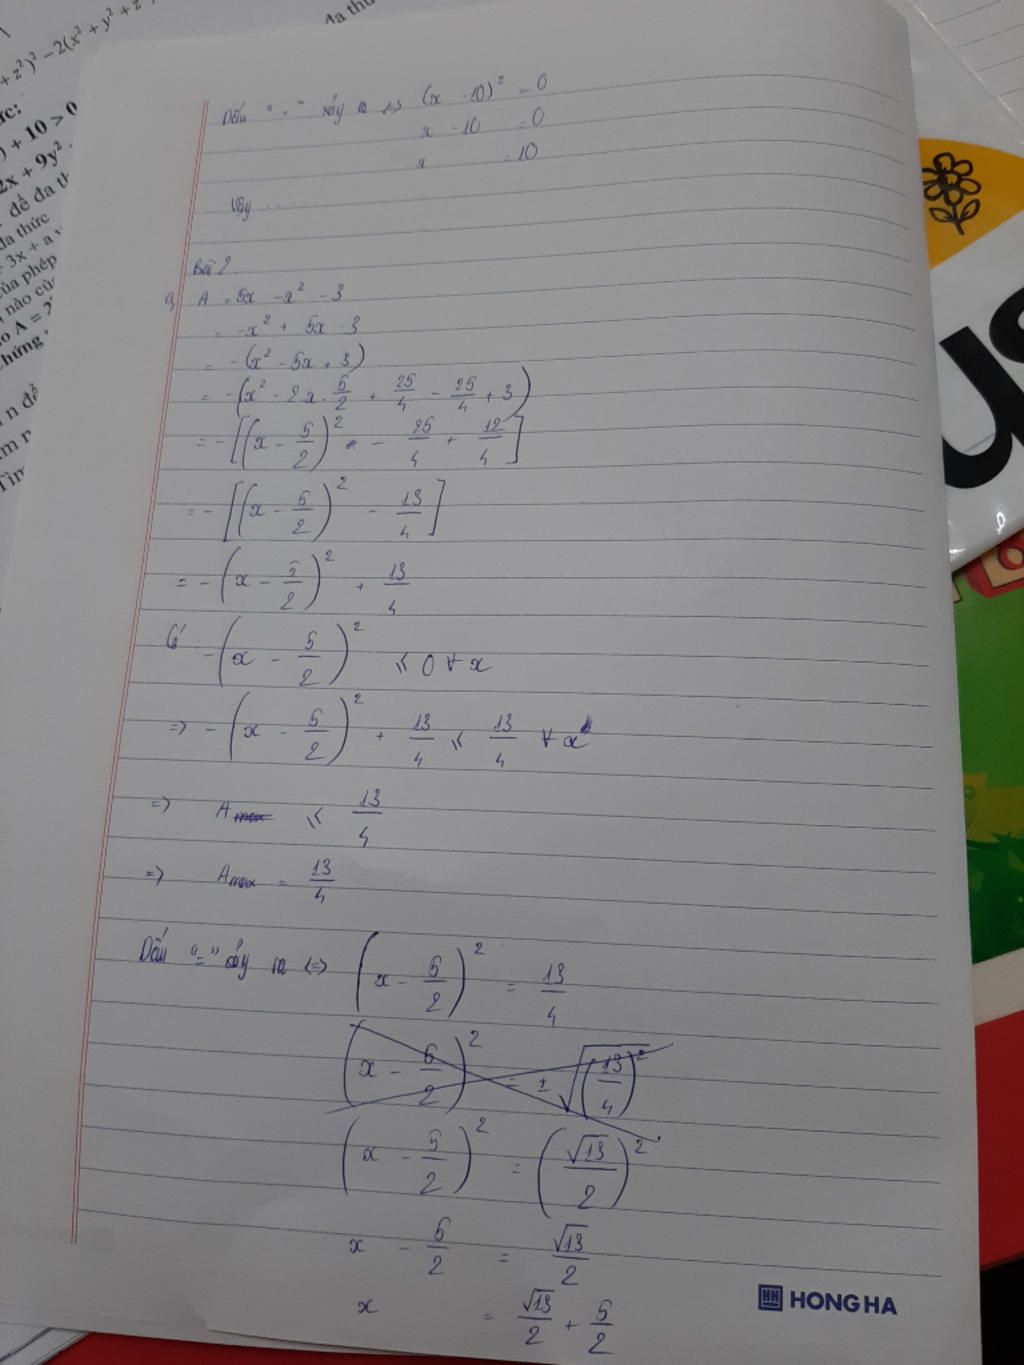 + z²)² − 2(x² + y² + z
) + 10 > 0
2x + 9y²
để đa th
đa thức
3x + a
của phép
nào
A = 2
chứng
n để
Dấu "=" xảy ra <=> (x - 10)² = 0
x - 10 = 0
x = 10
Vậy ....
Bài 2.
a, A = 5x - x² - 3
= -x² + 5x - 3
= -(x² - 5x + 3)
= -(x² - 2x . 5/2 + 25/4 - 25/4 + 3)
= -[(x - 5/2)² - 25/4 + 12/4]
= -[(x - 5/2)² - 13/4]
= -(x - 5/2)² + 13/4
Có: -(x - 5/2)² ≤ 0 ∀ x
=> -(x - 5/2)² + 13/4 ≤ 13/4 ∀ x
=> A max ≤ 13/4
=> Amax = 13/4
Dấu "=" xảy ra <=> (x - 5/2)² = 13/4
(x - 5/2)² = ± √(13/4)²
(x - 5/2)² = (√13/2)²
x - 5/2 = √13/2
x = √13/2 + 5/2
HONG HA